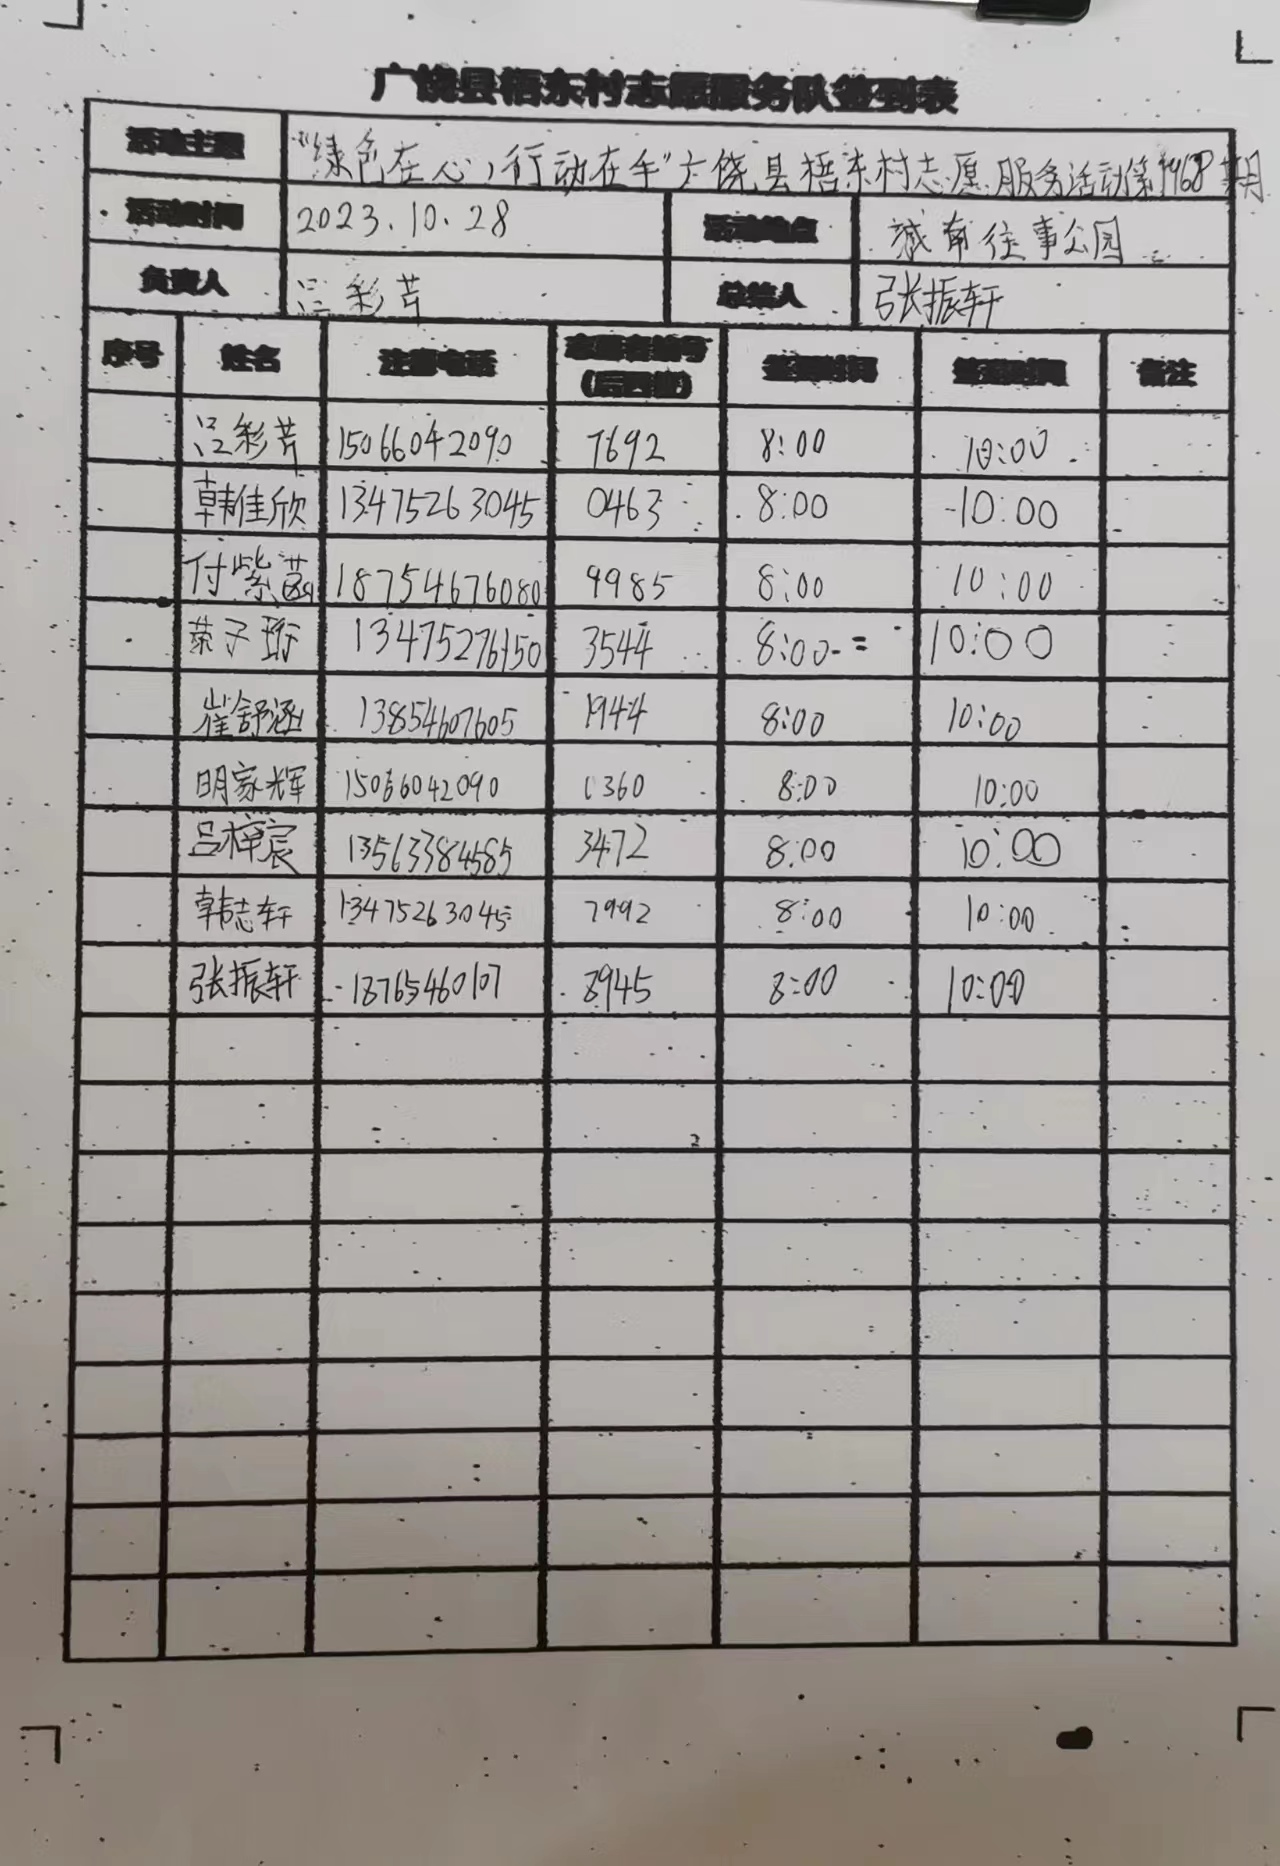 广饶县梧东村志愿服务队签到表
活动主题 "绿色在心,行动在手"广饶县梧东村志愿服务活动第1968期
活动时间 2023.10.28 活动地点 城南往事公园
负责人 吕彩芹 总结人 张振轩
序号 姓名 注册电话 志愿者编号(后四位) 签到时间 签退时间 备注
吕彩芹 15066042090 7692 8:00 10:00
韩佳欣 13475263045 0463 8:00 10:00
付紫菡 18754676080 9985 8:00 10:00
荣子珩 13475276150 3544 8:00 10:00
崔舒涵 13854607605 1944 8:00 10:00
明家辉 15066042090 0360 8:00 10:00
吕梓宸 13563384585 3472 8:00 10:00
韩志轩 13475263045 7992 8:00 10:00
张振轩 18765460107 8945 8:00 10:00